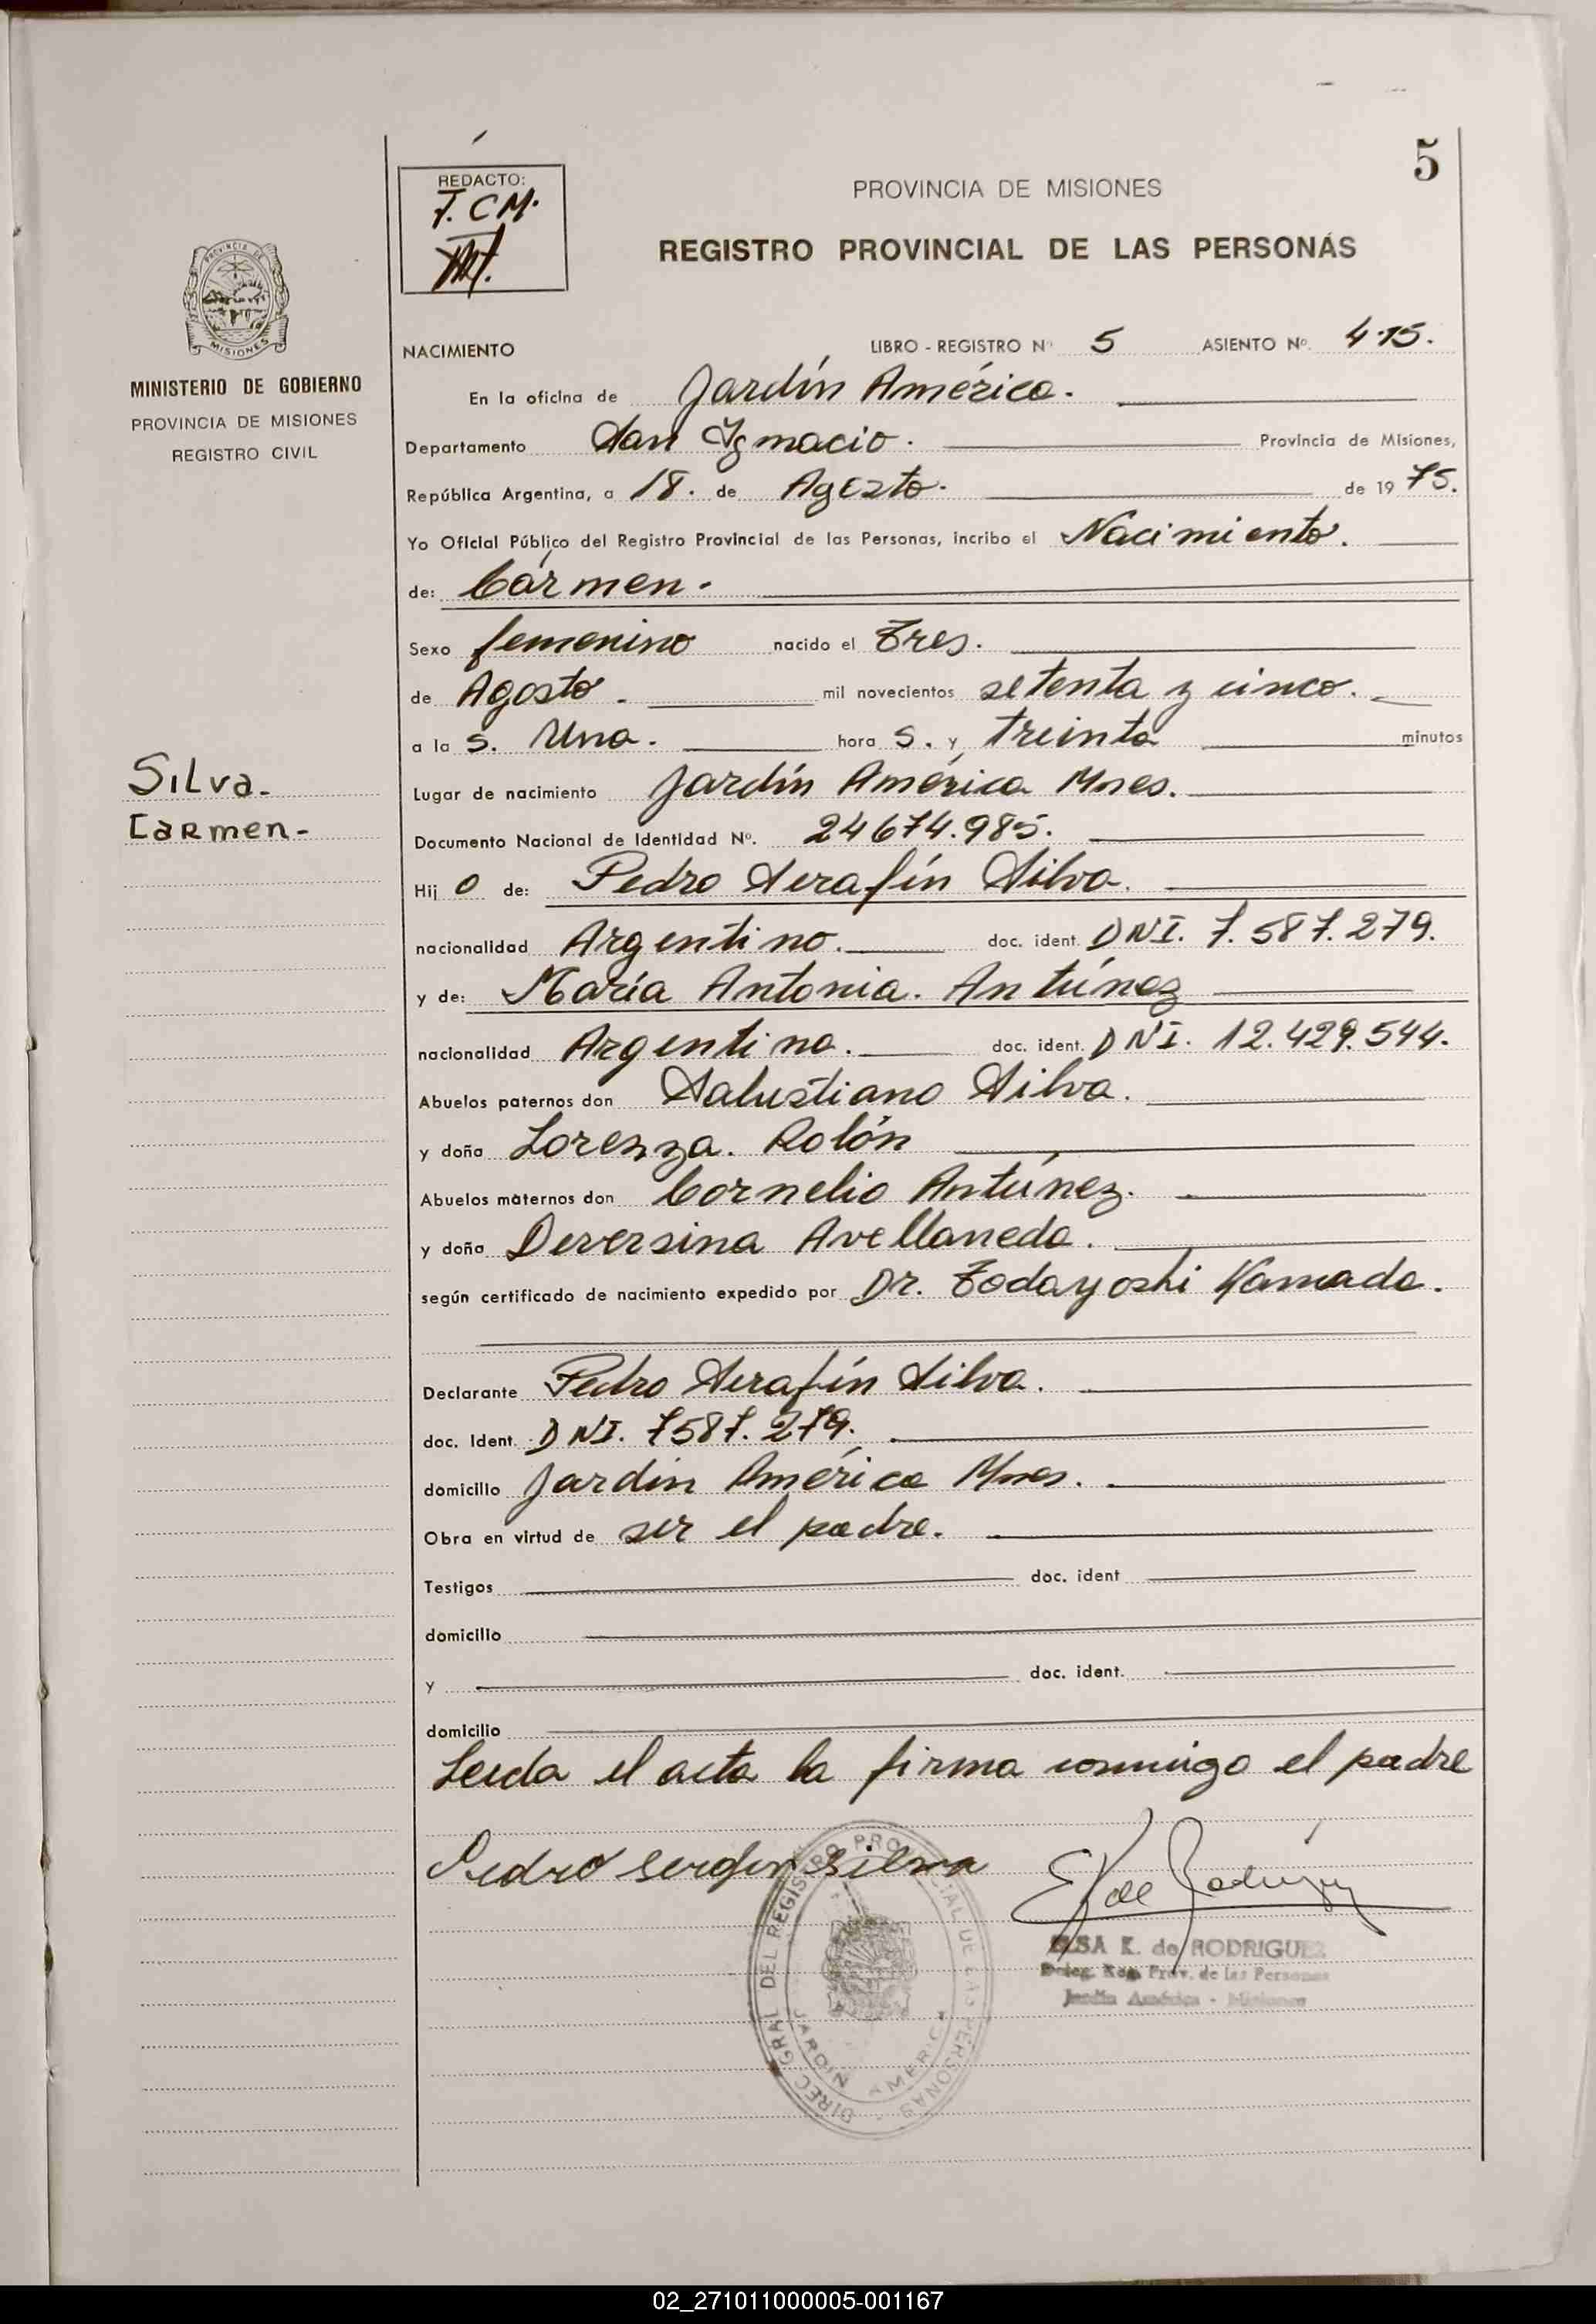 5
REDACTO:
F. CM.
PROVINCIA DE MISIONES
REGISTRO PROVINCIAL DE LAS PERSONAS
PROVINCIA DE
MISIONES
MINISTERIO DE GOBIERNO
PROVINCIA DE MISIONES
REGISTRO CIVIL
NACIMIENTO LIBRO - REGISTRO Nº 5 ASIENTO Nº. 415.
En la oficina de Jardín América.
Departamento San Ignacio. Provincia de Misiones,
República Argentina, a 18. de Agosto. de 19 75.
Yo Oficial Público del Registro Provincial de las Personas, incribo el Nacimiento.
de: Cármen.
Sexo femenino nacido el Tres.
de Agosto. mil novecientos setenta y cinco.
a la s. Una. hora s. y treinta minutos
Silva.
Carmen-
Lugar de nacimiento Jardín América Mnes.
Documento Nacional de Identidad Nº. 24674.985.
Hij o de: Pedro Serafín Silva.
nacionalidad Argentino. doc. ident. DNI. 7.587.279.
y de: María Antonia. Antúnez
nacionalidad Argentina. doc. ident. DNI. 12.429.544.
Abuelos paternos don Salustiano Silva.
y doña Lorenza. Rolón
Abuelos maternos don Cornelio Antúnez.
y doña Deversina Avellaneda.
según certificado de nacimiento expedido por Dr. Todayoshi Kamada.
Declarante Pedro Serafín Silva.
doc. Ident. DNI. 7587.279.
domicilio Jardín América Mnes.
Obra en virtud de ser el padre.
Testigos doc. ident
domicilio
y doc. ident.
domicilio
Leída el acta la firma conmigo el padre
Pedro Serafin Silva
E K de Rodriguez
DIREC. GRAL. DEL REGISTRO PROVINCIAL DE LAS PERSONAS
JARDIN AMERICA
ELSA K. de RODRIGUEZ
Deleg. Reg. Prov. de las Personas
Jardín América - Misiones
02_271011000005-001167